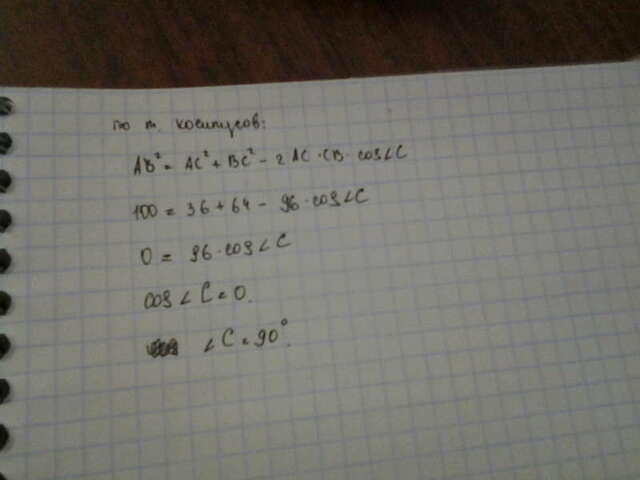 по т. косинусов:
AB² = AC² + BC² - 2 AC · CB · cos∠C
100 = 36 + 64 - 96 · cos∠C
0 = 96 · cos∠C
cos∠C = 0.
∠C = 90°.